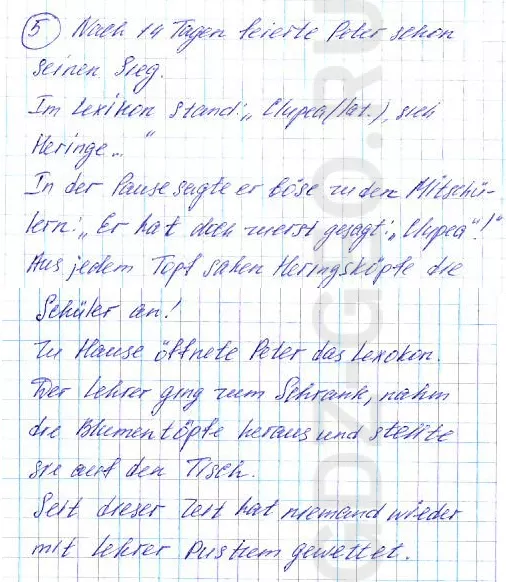 5 Nach 14 Tagen feierte Peter schon
seinen Sieg.
Im Lexikon stand: „Clupea (lat.), sieh
Heringe..."
In der Pause sagte er böse zu den Mitschü-
lern: „Er hat doch zuerst gesagt: „Clupea"!"
Aus jedem Topf sahen Heringsköpfe die
Schüler an!
Zu Hause öffnete Peter das Lexokon.
Der Lehrer ging zum Schrank, nahm
die Blumentöpfe heraus und stellte
sie auf den Tisch.
Seit dieser Zeit hat niemand wieder
mit Lehrer Pustrem gewettet.
GDZGURU